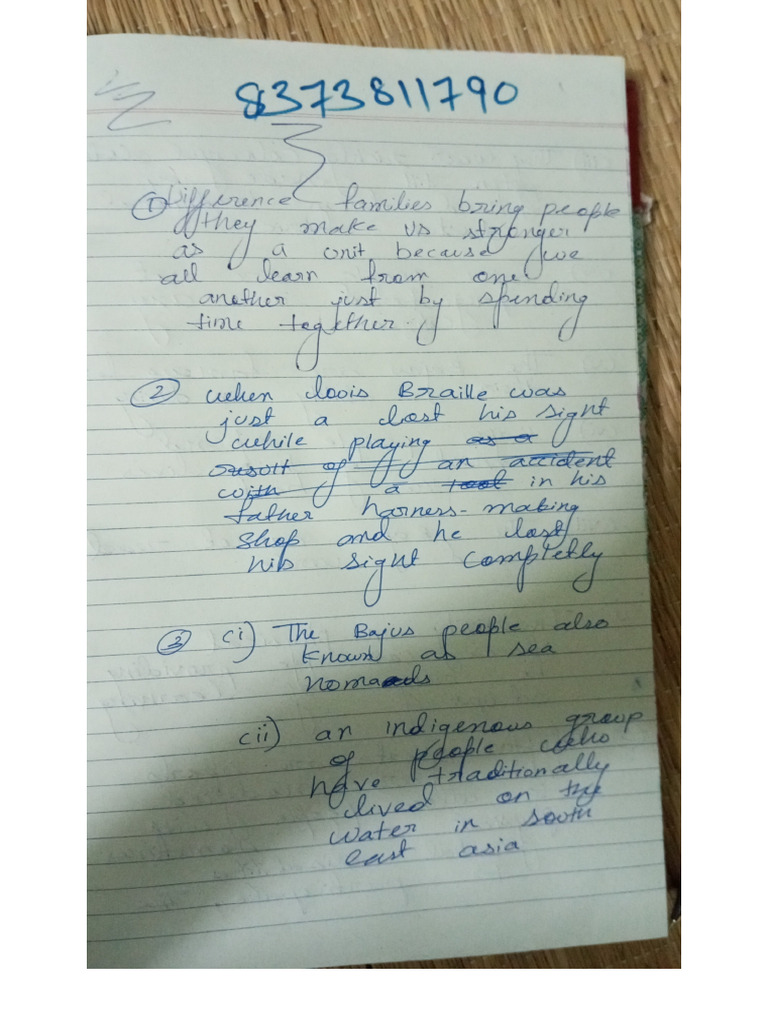 8373811790
① Difference families bring people
they make us stronger
as a unit because we
all learn from one
another just by spending
time together.
② when louis Braille was
just a lost his sight
while playing as a
result of an accident
with a tool in his
father harness-making
shop and he lost
his sight completly
③ (i) The Bajus people also
known as sea
nomads
(ii) an indigenous group
of people who
have traditionally
lived on the
water in south
east asia